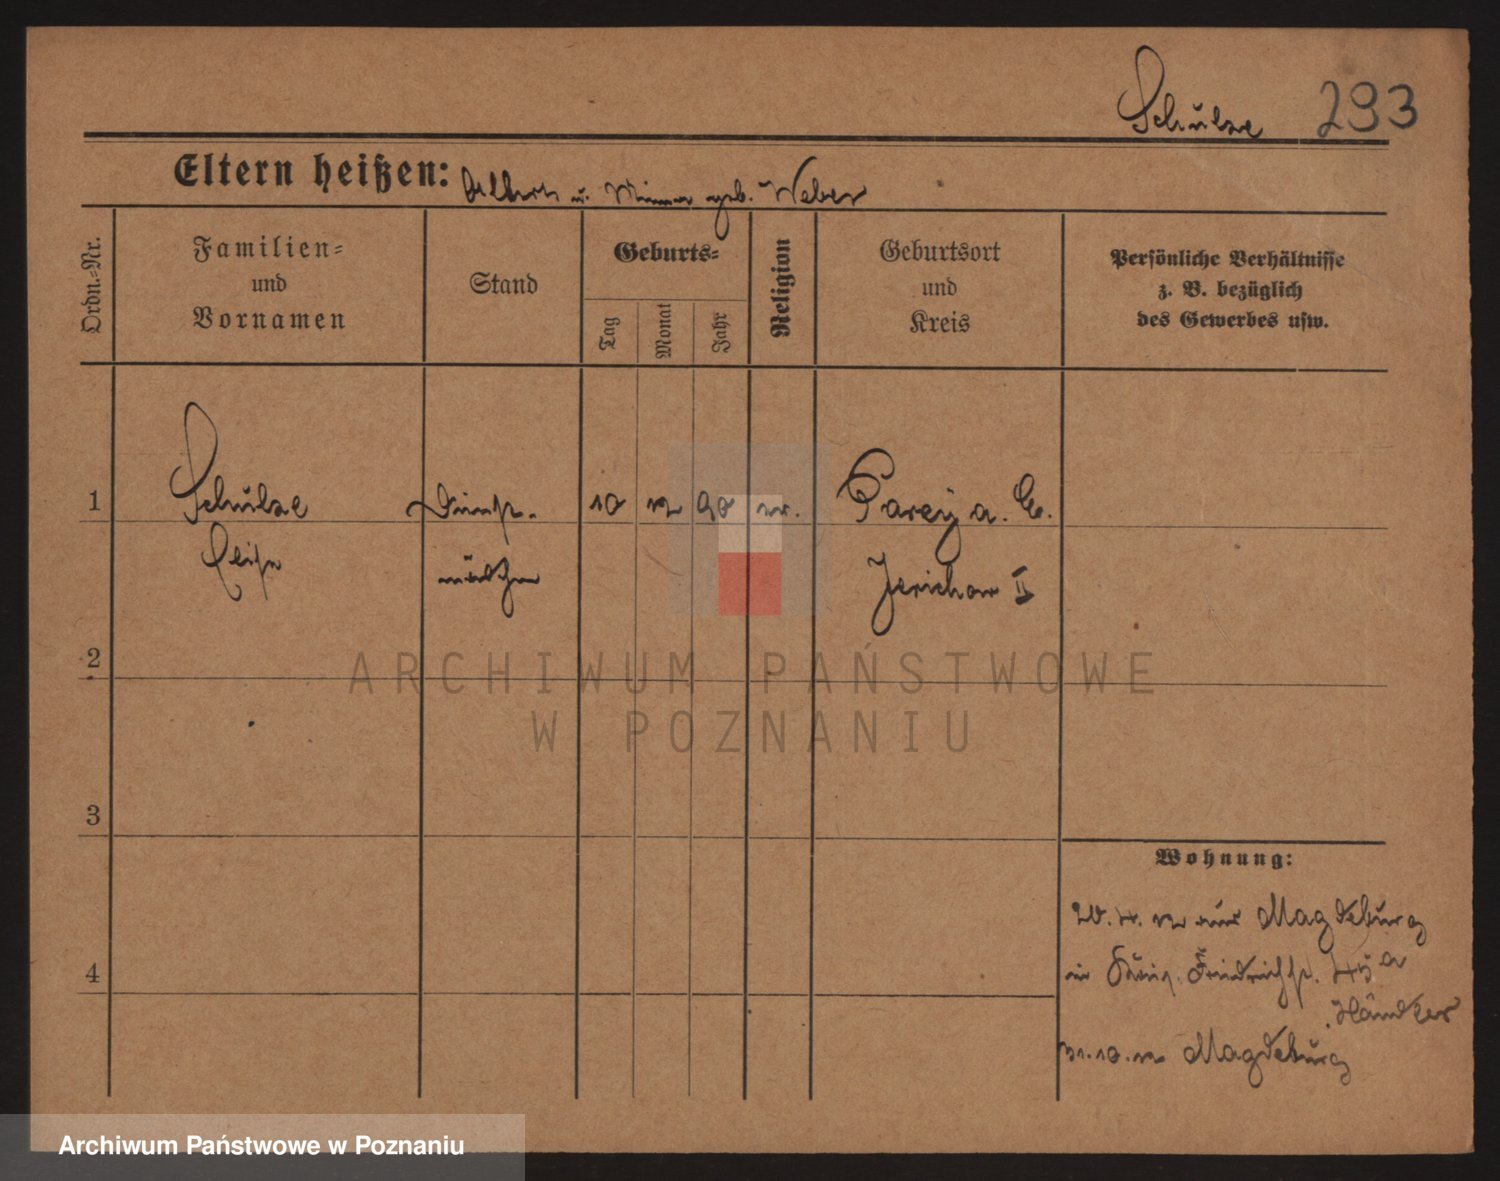 Schulze 293
Eltern heißen: Albert u. Minna geb. Weber
Ordn.=Nr.
Familien=
und
Vornamen
Stand
Geburts=
Tag
Monat
Jahr
Religion
Geburtsort
und
Kreis
Persönliche Verhältnisse
z. B. bezüglich
des Gewerbes usw.
1 Schulze Dienst- 10 12 90 ev. Parey a. E.
mädchen Jerichow II
2
ARCHIWUM PAŃSTWOWE
W POZNANIU
3
Wohnung:
20. 4. 12 aus Magdeburg
4
Friedrichst. 45 a
31.10.12 Magdeburg
Archiwum Państwowe w Poznaniu